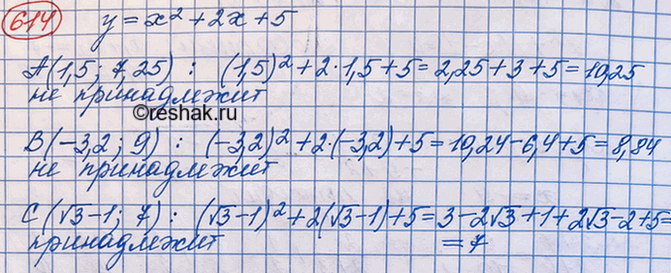 614 y = x² + 2x + 5
A(1,5; 7,25) : (1,5)² + 2·1,5 + 5 = 2,25 + 3 + 5 = 10,25
не принадлежит
©reshak.ru
B(-3,2; 9) : (-3,2)² + 2·(-3,2) + 5 = 10,24 - 6,4 + 5 = 8,84
не принадлежит
C(√3-1; 7) : (√3-1)² + 2(√3-1) + 5 = 3 - 2√3 + 1 + 2√3 - 2 + 5 =
принадлежит = 7